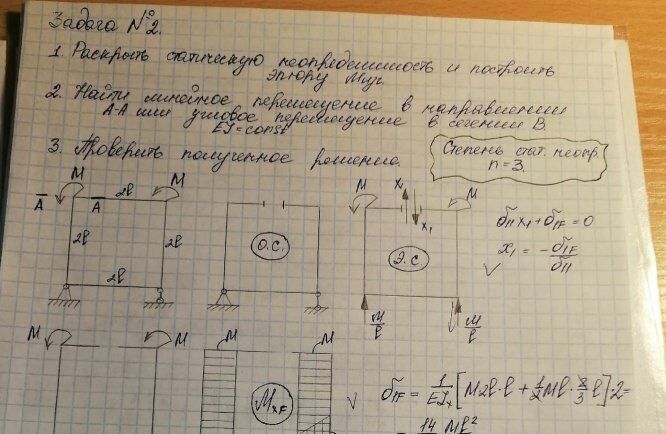 Задача №2.
1. Раскрыть статическую неопределимость и построить
эпюру Mизг.
2. Найти линейное перемещение в направлении
A-A или угловое перемещение в сечении B.
EJ=const
3. Проверить полученное решение.
Степень стат. неопр.
n=3.
M 2l M
A A
2l 2l
2l
О.С.
M X₁ M
X₁
Э.С.
M/l M/l
δ₁₁X₁+δ₁F=0
X₁ = -δ₁F/δ₁₁
M M
M M
MxF
δ₁F = 1/EJx [M2l·l + 1/2Ml·2/3l]·2=
14 Ml²